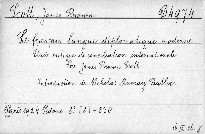 Scott, James Brown B 4974
Le français langue diplomatique moderne
Étude critique de conciliation internationale
Par James Brown Scott
Introduction de Nicholas Murray Butler.
Paris 1924 Pedone 8°